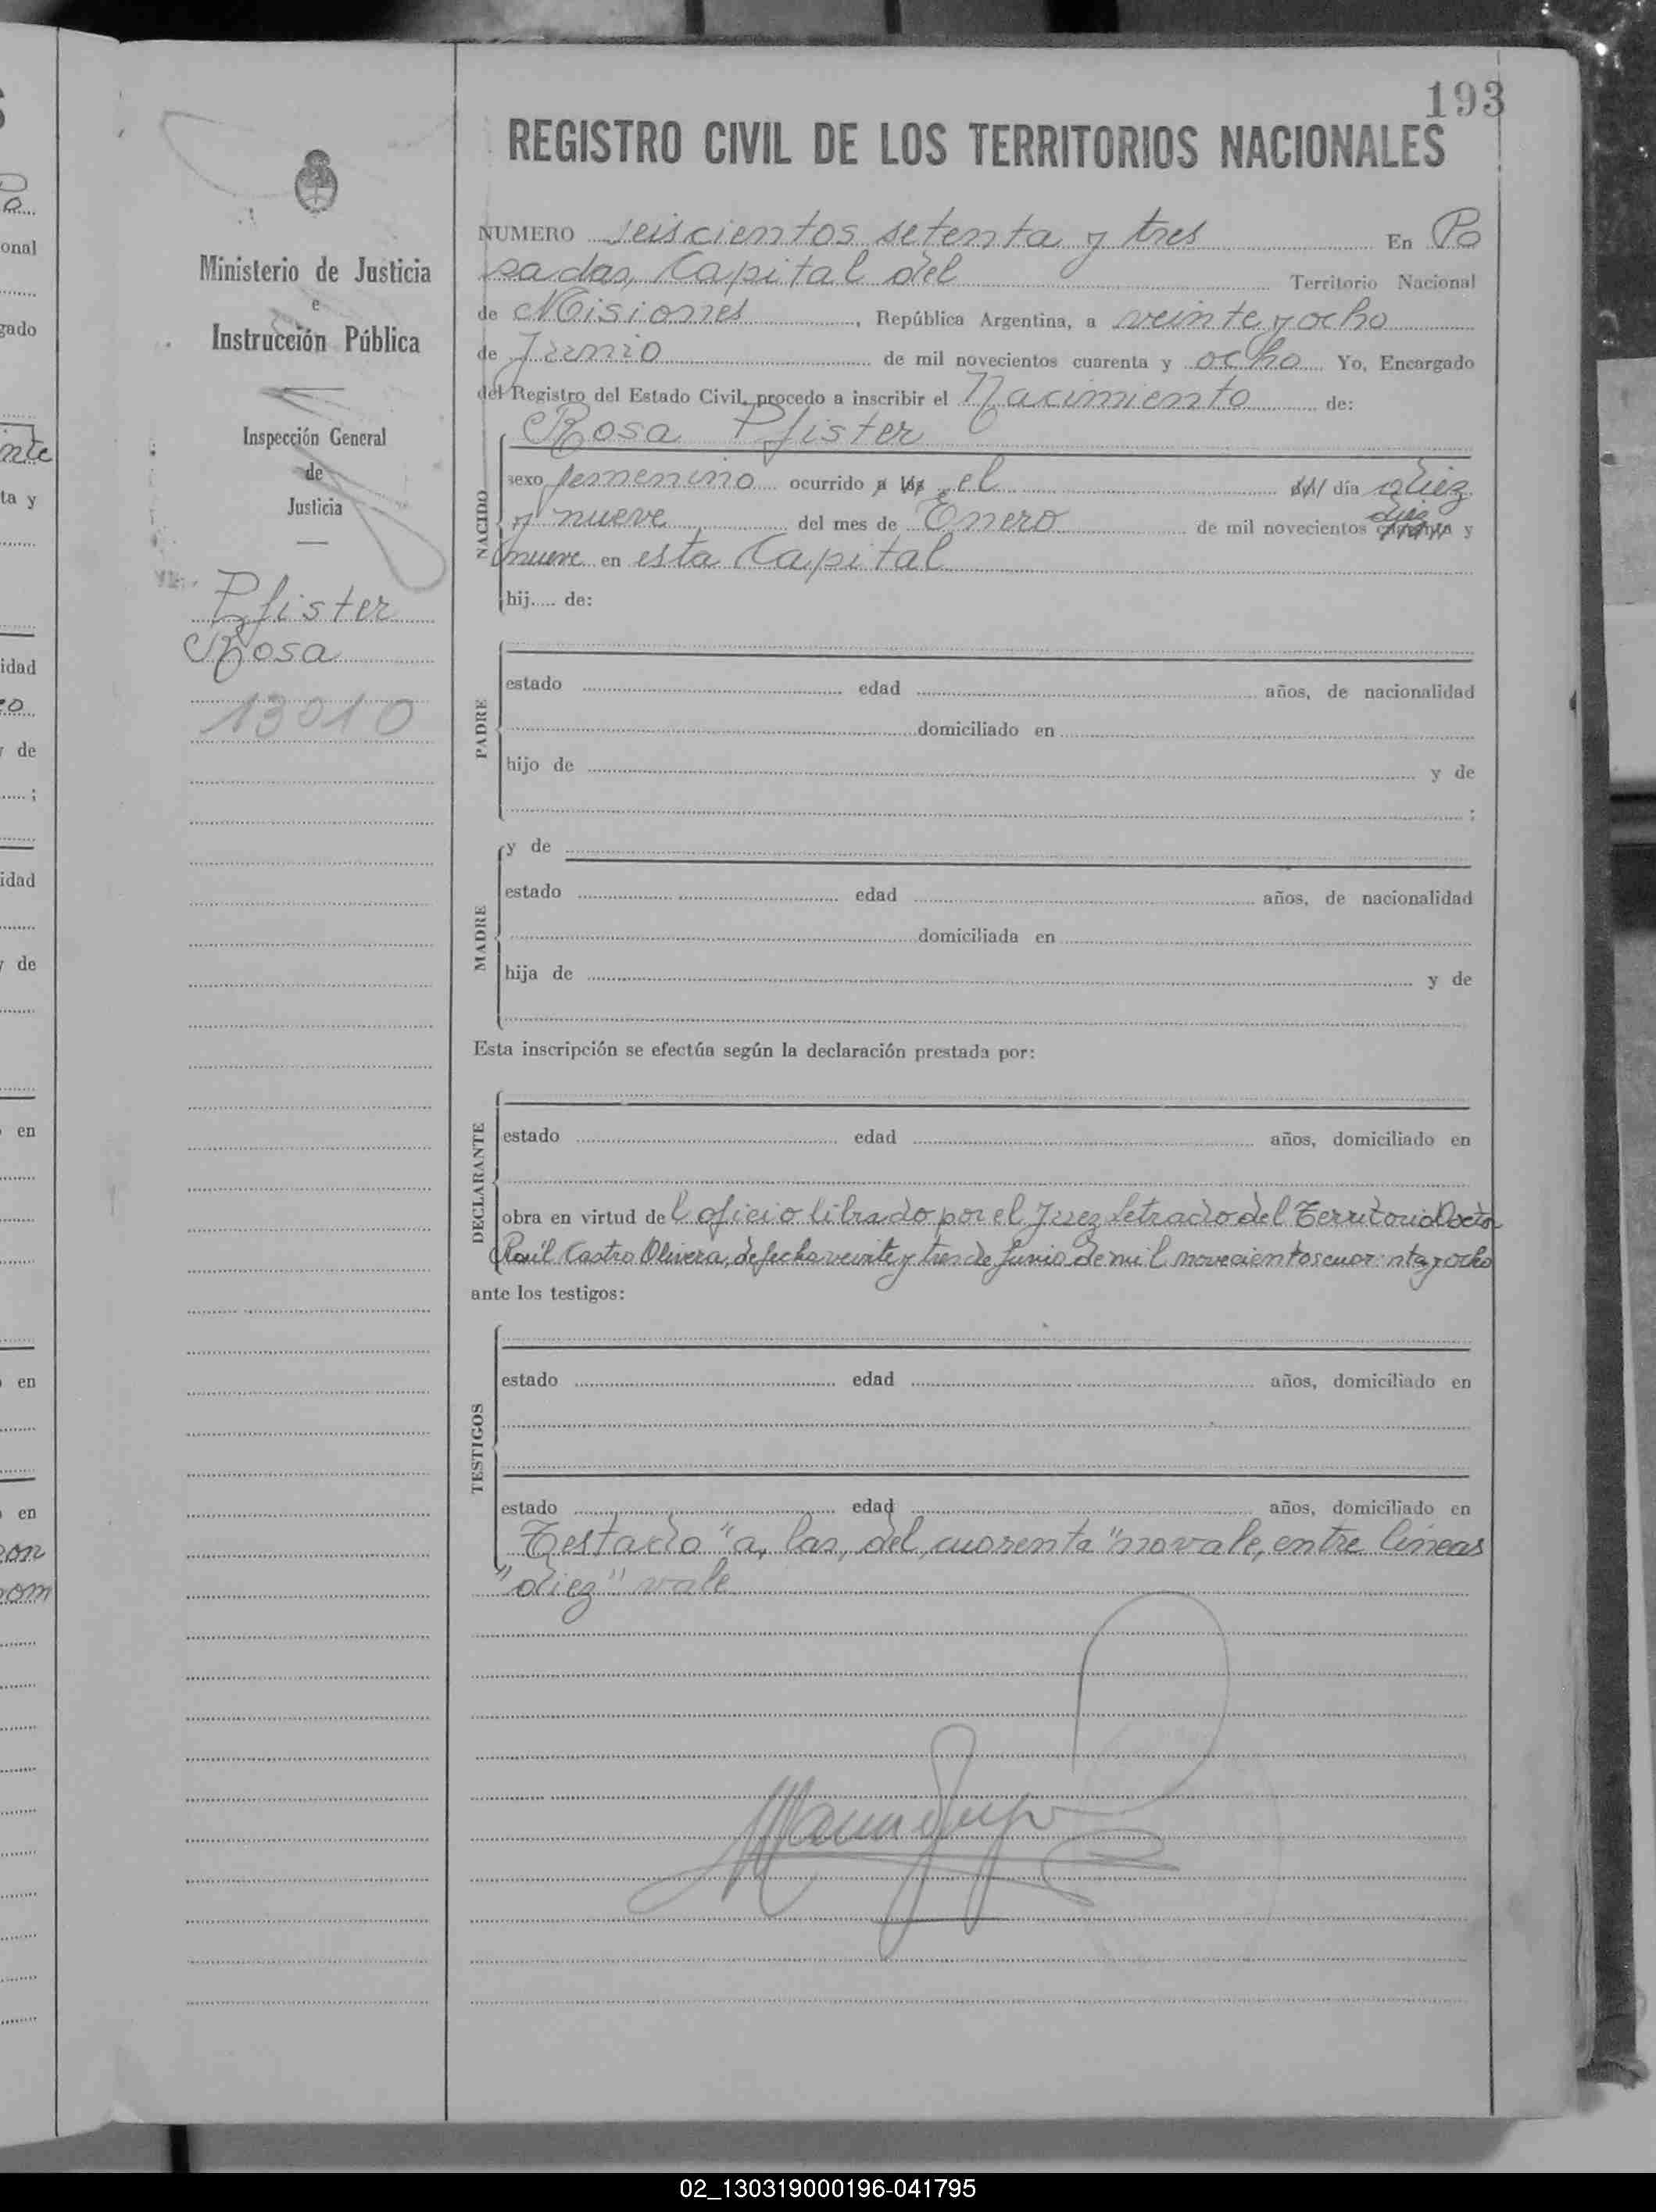 193
REGISTRO CIVIL DE LOS TERRITORIOS NACIONALES
Ministerio de Justicia
e
Instrucción Pública
Inspección General
de
Justicia
Pfister
Rosa
13010
NUMERO seiscientos setenta y tres En Po
sadas, Capital del Territorio Nacional
de Misiones, República Argentina, a veinte y ocho
de Junio de mil novecientos cuarenta y ocho Yo, Encargado
del Registro del Estado Civil, procedo a inscribir el Nacimiento de:
NACIDO
Rosa Pfister
sexo femenino ocurrido a las el del día diez
y nueve del mes de Enero de mil novecientos cuarenta diez y
nueve en esta Capital
hij.... de:
PADRE
estado edad años, de nacionalidad
domiciliado en
hijo de y de
;
MADRE
y de
estado edad años, de nacionalidad
domiciliada en
hija de y de
Esta inscripción se efectúa según la declaración prestada por:
DECLARANTE
estado edad años, domiciliado en
obra en virtud del oficio librado por el Juez Letrado del Territorio Doctor
Raúl Castro Olivera, de fecha veinte y tres de Junio de mil novecientos cuarenta y ocho
ante los testigos:
TESTIGOS
estado edad años, domiciliado en
estado edad años, domiciliado en
Testado "a, las, del, cuarenta" no vale, entre líneas
"diez" vale
02_130319000196-041795